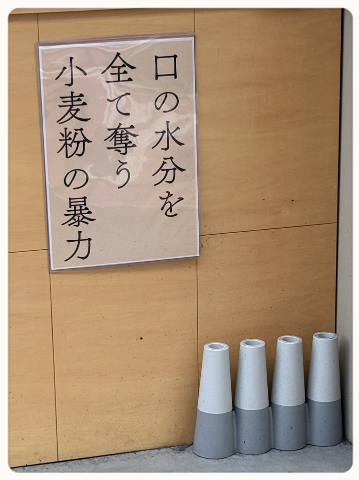 口の水分を
全て奪う
小麦粉の暴力